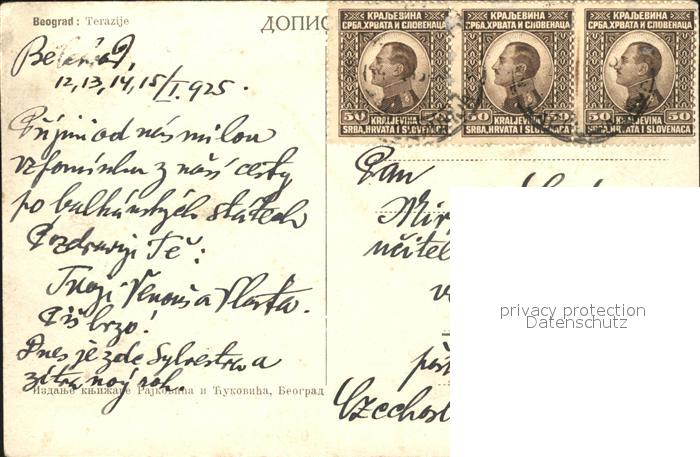 Beograd: Terazije
ДОПИС
Bělehrad,
12,13,14,15/I.925.
Přijmi od nás milou
vzpomínku z naší cesty
po balkánských státech
Pozdravují Tě:
Tvoji Venouš a Vlasta.
Piš brzo!
Dnes je zde Sylvestr a
zítra nový rok.
Издање књижаре Рајковића и Ћуковића, Београд
КРАЉЕВИНА
СРБА, ХРВАТА И СЛОВЕНАЦА
50 50
KRALJEVINA
SRBA, HRVATA I SLOVENACA
КРАЉЕВИНА
СРБА, ХРВАТА И СЛОВЕНАЦА
50 50
KRALJEVINA
SRBA, HRVATA I SLOVENACA
КРАЉЕВИНА
СРБА, ХРВАТА И СЛОВЕНАЦА
50 50
KRALJEVINA
SRBA, HRVATA I SLOVENACA
Pan
Mir
učitel
v
poš
Czechosl
privacy protection
Datenschutz